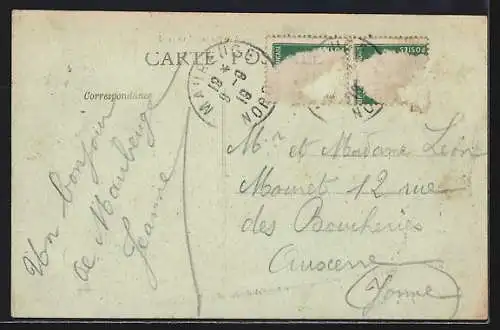 CARTE POSTALE
Correspondance
MAUBEUGE
NORD
POSTES
POSTES
Un bonjour
de Maubeuge
Jeanne
Mr et Madame Léon
12 rue
des Boucheries
Auxerre
(Yonne)